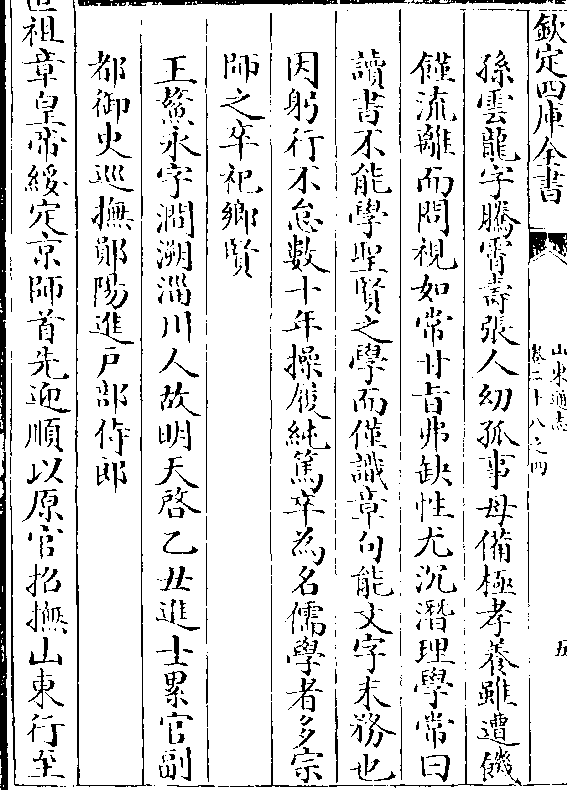 欽定四庫全書
山東通志
卷二十八之四
五
孫雲龍字騰霄壽張人幼孤事母備極孝養雖遭饑
饉流離而問視如常甘旨弗缺性尤沉潛理學常曰
讀書不能學聖賢之學而僅識章句能文字末務也
因躬行不怠數十年操履純篤卒為名儒學者多宗
師之卒祀鄉賢
王鰲永字澗溯淄川人故明天啓乙丑進士累官副
都御史巡撫鄖陽進戶部侍郎
世祖章皇帝綏定京師首先迎順以原官招撫山東行至